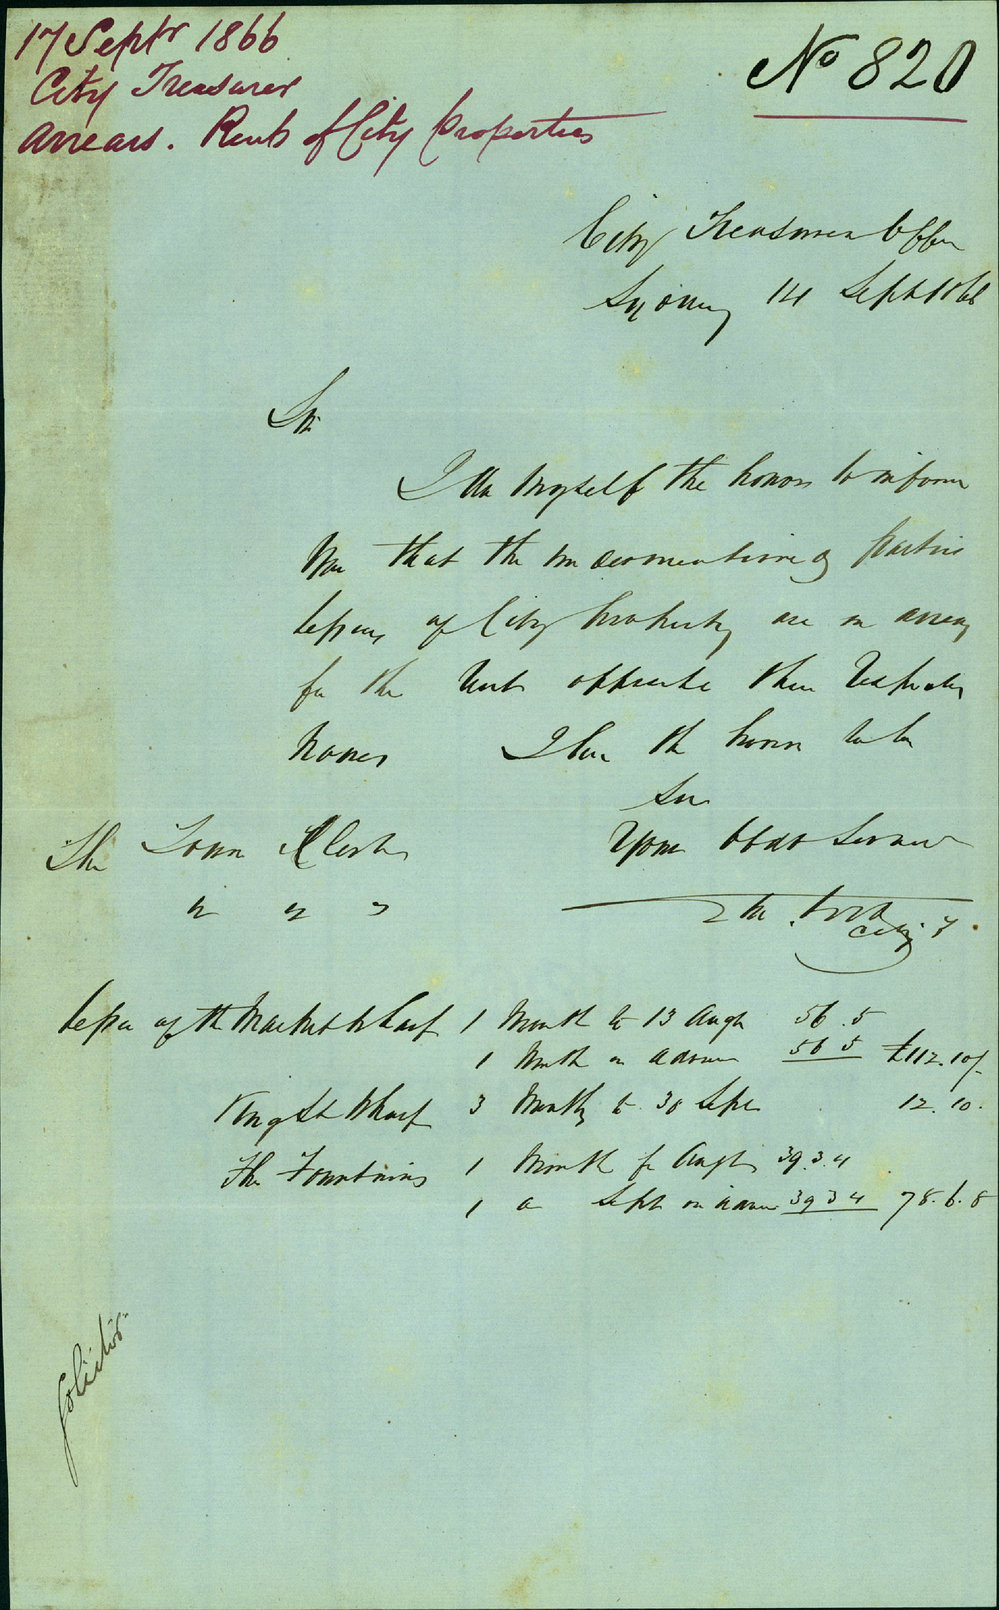 17 Septr 1866
City Treasurer
Arrears. Rents of City Properties
No 820
City Treasurers Office
Sydney 14 Sept 1866
Sir
I do myself the honor to inform
you that the undermentioned parties
lessees of City Property are in arrears
for the Rents opposite their Respective
Names I have the honor to be
Sir
Your Obdt Servant
The Town Clerk
" " "
City T
Lessee of the Market Wharf 1 Month to 13 Augt 56.5
1 Month in advance 56 5 £112.10/-
King St Wharf 3 Months to 30 Sept 12.10.
The Fountains 1 Month for Augt 39.3.4
1 " Sept in advance 39 3 4 78.6.8
Solicitor